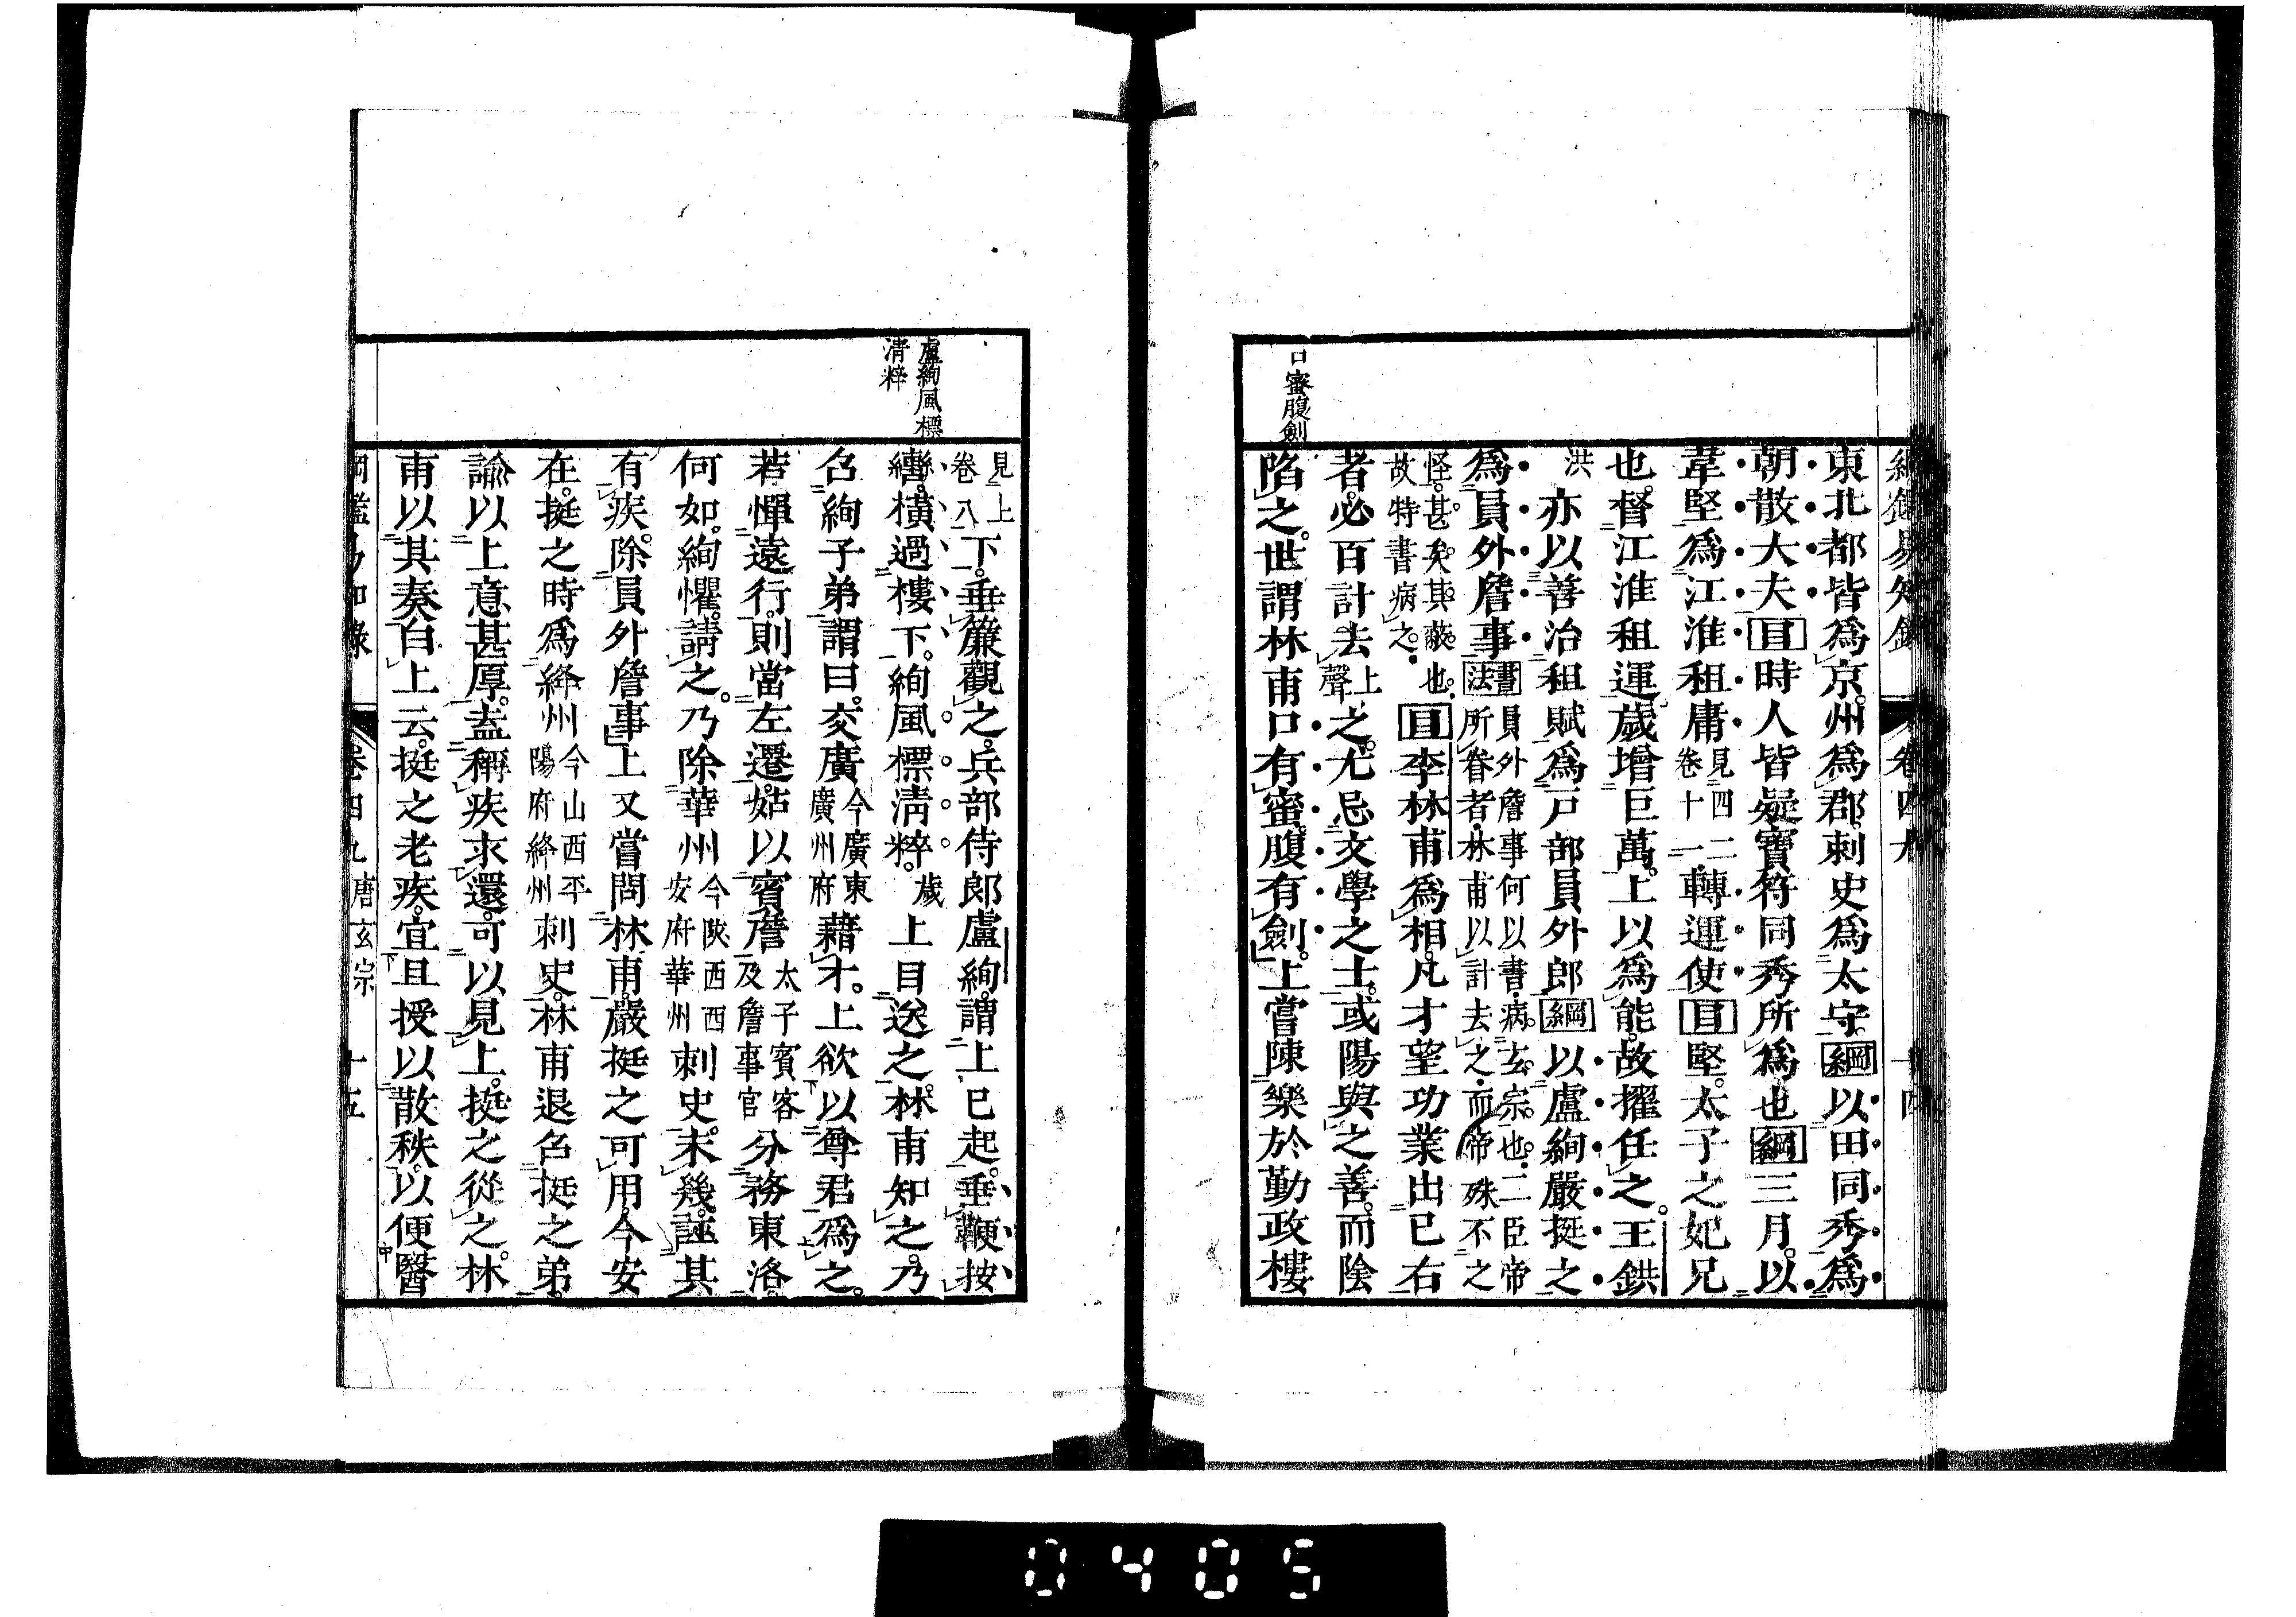 口蜜腹劍
東北都皆爲京。州爲郡。刺史爲太守。綱以田同秀爲
朝散大夫目時人皆疑寶符同秀所爲也綱三月。以
韋堅爲江淮租庸見四二卷十一轉運使目堅。太子之妃兄
也。督江淮租運。歲增巨萬。上以爲能。故擢任之。王鉷
洪亦以善治租賦爲戸部員外郎綱以盧絢嚴挺之
爲員外詹事書法員外詹事何以書。病玄宗也。二臣帝所眷者。林甫以計去之。而帝殊不之
怪。甚矣。其蔽也。故特書病之。目李林甫爲相。凡才望功業出已右
者。必百計去上聲之。尤忌文學之士。或陽與之善。而陰
陷之。世謂林甫口有蜜。腹有劍。上嘗陳樂於勤政樓
盧絢風標
清粹
見上卷八下。垂簾觀之。兵部侍郎盧絢。謂上已起。垂鞭按
轡。橫過樓下。絢風標淸粹。歲上目送之。林甫知之。乃
召絢子弟謂曰。交廣今廣東廣州府藉才。上欲以尊君爲之。
若憚遠行。則當左遷。姑以賓詹太子賓客及詹事官分務東洛。
何如。絢懼。請之。乃除華州今陝西西安府華州刺史。未幾。誣其
有疾。除員外詹事上又嘗問林甫。嚴挺之可用。今安
在。挺之時爲絳州今山西平陽府絳州刺史。林甫退召挺之弟。
諭以上意甚厚。盍稱疾求還。可以見上。挺之從之。林
甫以其奏白上云。挺之老疾。宜且授以散秩。以便醫
卷四九 唐玄宗 十五
0405